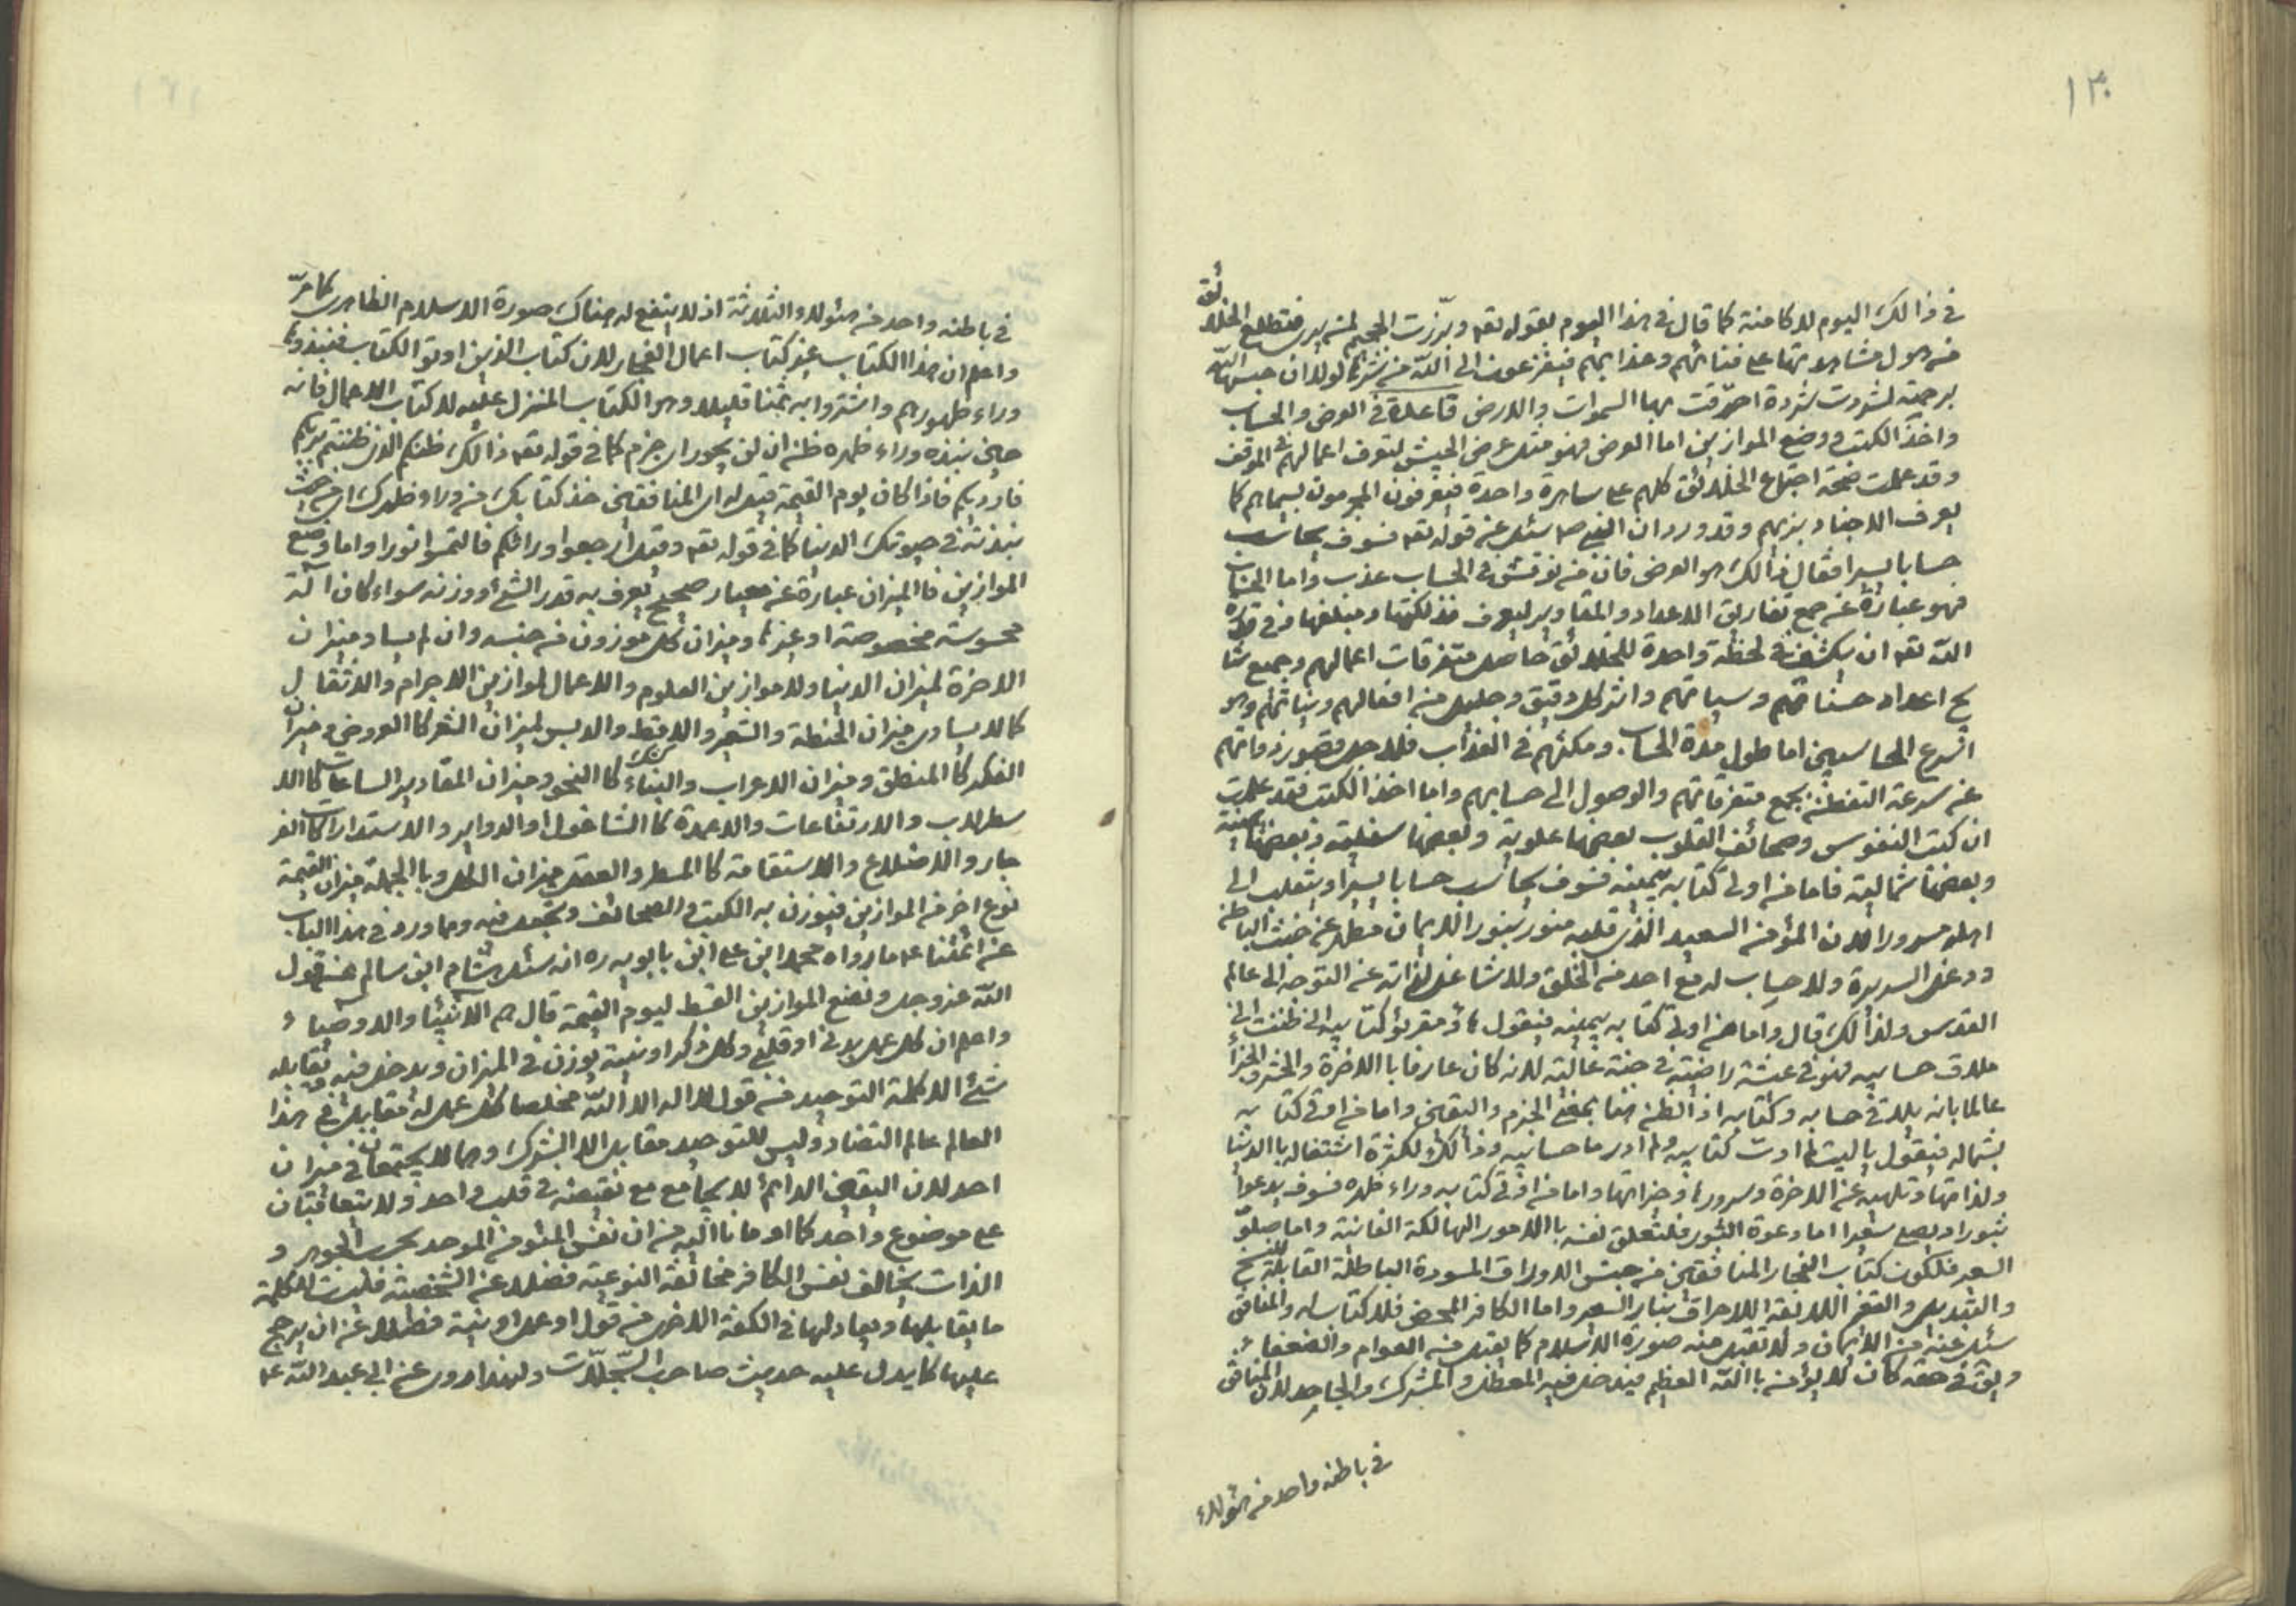 ١٣٠
في ذالك اليوم لا كامنة كما قال في هذا اليوم بقوله تعه وبرّزت الجحيم لمن يرى فتطلع الخلائق
من هول مشاهدتها على فنائهم وعذابهم فيفزعون الى اللّه من شرّها لولا ان حبسها اللّه
برحمته لشردت شردة احرقت بها السموات والارض قاعدة في العرض والحساب
واخذ الكتب ووضع الموازين اما العرض فهو مثل عرض الجيش لتعرف اعمالهم في الموقف
وقد علمت صحة اجتماع الخلائق كلهم على ساهرة واحدة فيعرفون المجرمون بسيماهم كما
يعرف الاجناد بزيهم وقد ورد ان النبي ص سئل عن قوله تعه فسوف يحاسب
حسابا يسيرا فقال ذالك هو العرض فان من نوقش في الحساب عذب واما الحساب
فهو عبارة عن جمع تفاريق الاعداد والمقادير ليعرف فذلكتها ومبلغها وفي قدرة
اللّه تعه ان يكشف في لحظة واحدة للخلائق حاصل متفرقات اعمالهم وجميع نتا
يج اعداد حسناتهم وسياتهم واثر كل دقيق وجليل من افعالهم ونياتهم وهو
اسرع الحاسبين اما طول مدة الحساب ومكثهم في العذاب فلاجل قصور ذواتهم
عن سرعة التفطن بجمع متفرقاتهم والوصول الى حسابهم واما اخذ الكتب فقد علمت
ان كتب النفوس وصحائف القلوب بعضها علوية وبعضها سفلية وبعضها يمينية
وبعضها شمالية فاما من اوتي كتابه بيمينه فسوف يحاسب حسابا يسيرا وينقلب الى
اهله مسرورا لان المؤمن السعيد الذي قلبه منور بنور الايمان مطهر عن خبث الباطن
ودغل السريرة ولا حساب له مع احد من الخلق ولا شاغل لذاته عن التوجه الى عالم
القدس ولذالك قال واما من اوتي كتابه بيمينه فيقول هاؤم اقرؤا كتابيه اني ظننت اني
ملاق حسابيه فهو في عيشة راضية في جنة عالية لانه كان عارفا باالاخرة والحشر والجزاء
عالما بانه يلاقي حسابه وكتابه اذ الظن هنا بمعنى الجزم واليقين واما من اوتي كتابه
بشماله فيقول ياليتني لم اوت كتابيه ولم ادر ما حسابيه وذالك لكثرة اشتغاله باالدنيا
ولذاتها وتلهيه عن الاخرة وسرورها وخيراتها واما من اوتي كتابه وراء ظهره فسوف يدعوا
ثبورا ويصلى سعيرا اما دعوة الثبور فلتعلق نفسه باالامور الهالكة الفانية واما صلوّ
السعير فلكون كتاب الفجار المنافقين من جنس الاوراق المسودة الباطلة القابلة للنسخ
والتبديل والتغير اللايقة للاحراق بنار السعير واما الكافر المحض فلا كتاب له والمنافق
سئل عنه من الايمان ولا تقبل منه صورة الاسلام كما يقبل من العوام والضعفاء
ويق في حقه كان لا يؤمن باالله العظيم فيدخل فيه المعطل والمشرك والجاحد لان المنافق
في باطنه واحد من هؤلاء
في باطنه واحد من هؤلاء والثلاثة اذ لا ينفع له هناك صورة الاسلام الظاهري كما مرّ
واعلم ان هذا الكتاب غير كتاب اعمال الفجار لان كتاب الذين اوتوا الكتاب فنبذوه
وراء ظهورهم واشتروا به ثمنا قليلا وهو الكتاب المنزل عليه لا كتاب الاعمال فانه
حين نبذه وراء ظهره ظن ان لن يحور اي جزم كما في قوله تعه ذالك ظنكم الذي ظننتم بربكم
فارديكم فاذا كان يوم القيمة قيل له اي المنافقين خذ كتابك من وراء ظهرك اي من حيث
نبذته في حيوتك الدنيا كما في قوله تعه وقيل ارجعوا ورائكم فالتمسوا نورا واما وضع
الموازين فاالميزان عبارة عن معيار صحيح يعرف به قدر الشئ ووزنه سواء كان آلة
محسوسة مخصوصة او غيرها وميزان كل موزون من جنسه وان لم يساو ميزان
الاخرة لميزان الدنيا ولا موازين العلوم والاعمال لموازين الاجرام والاثقال
كما لا يساوي ميزان الحنطة والشعير والاقط والدبس لميزان الشعر كاالعروض وميزان
الفكر كاالمنطق وميزان الاعراب والبناء كاالنحو وميزان المقادير الساعات كاالا
سطرلاب والارتفاعات والاعمدة كاالشاغول او الدواير والاستدارات كاالفر
جار والاضلاع والاستقامة كاالمسطر والعقل ميزان الكل وباالجملة ميزان القيمة
نوع اخر من الموازين فيوزن به الكتب والصحائف وتجعل فيه ومما ورد في هذا الباب
عن ائمتنا ع ما رواه محمد ابن علي ابن بابويه ره انه سئل هشام ابن سالم عن قول
اللّه عزوجل ونضع الموازين القسط ليوم القيمة قال هم الانبياء والاوصياء
واعلم ان كل عمل بدني او قلبي وكل ذكر او نية يوزن في الميزان ويدخل فيه ويقابله
شئ الا كلمة التوحيد من قول لا اله الا اللّه مخلصا كل عمل له مقابل في هذا
العالم عالم التضاد وليس للتوحيد مقابل الا الشرك وهما لا يجتمعان في ميزان
احد لان اليقين الدائم لا يجامع مع نقيضه في قلب واحد ولا يتعاقبان
على موضوع واحد كما اومانا اليه من ان نفس المئومن الموحد بحسب الجوهر و
الذات يخالف نفس الكافر مخالفة النوعية فضلا عن الشخصية فليست للكلمة
ما يقابلها ويعادلها في الكفة الاخرى من قول او عمل او نية فضلا عن ان يرجح
عليها كما يدل عليه حديث صاحب السّجلّات ولهذا روى عن ابي عبد اللّه ع